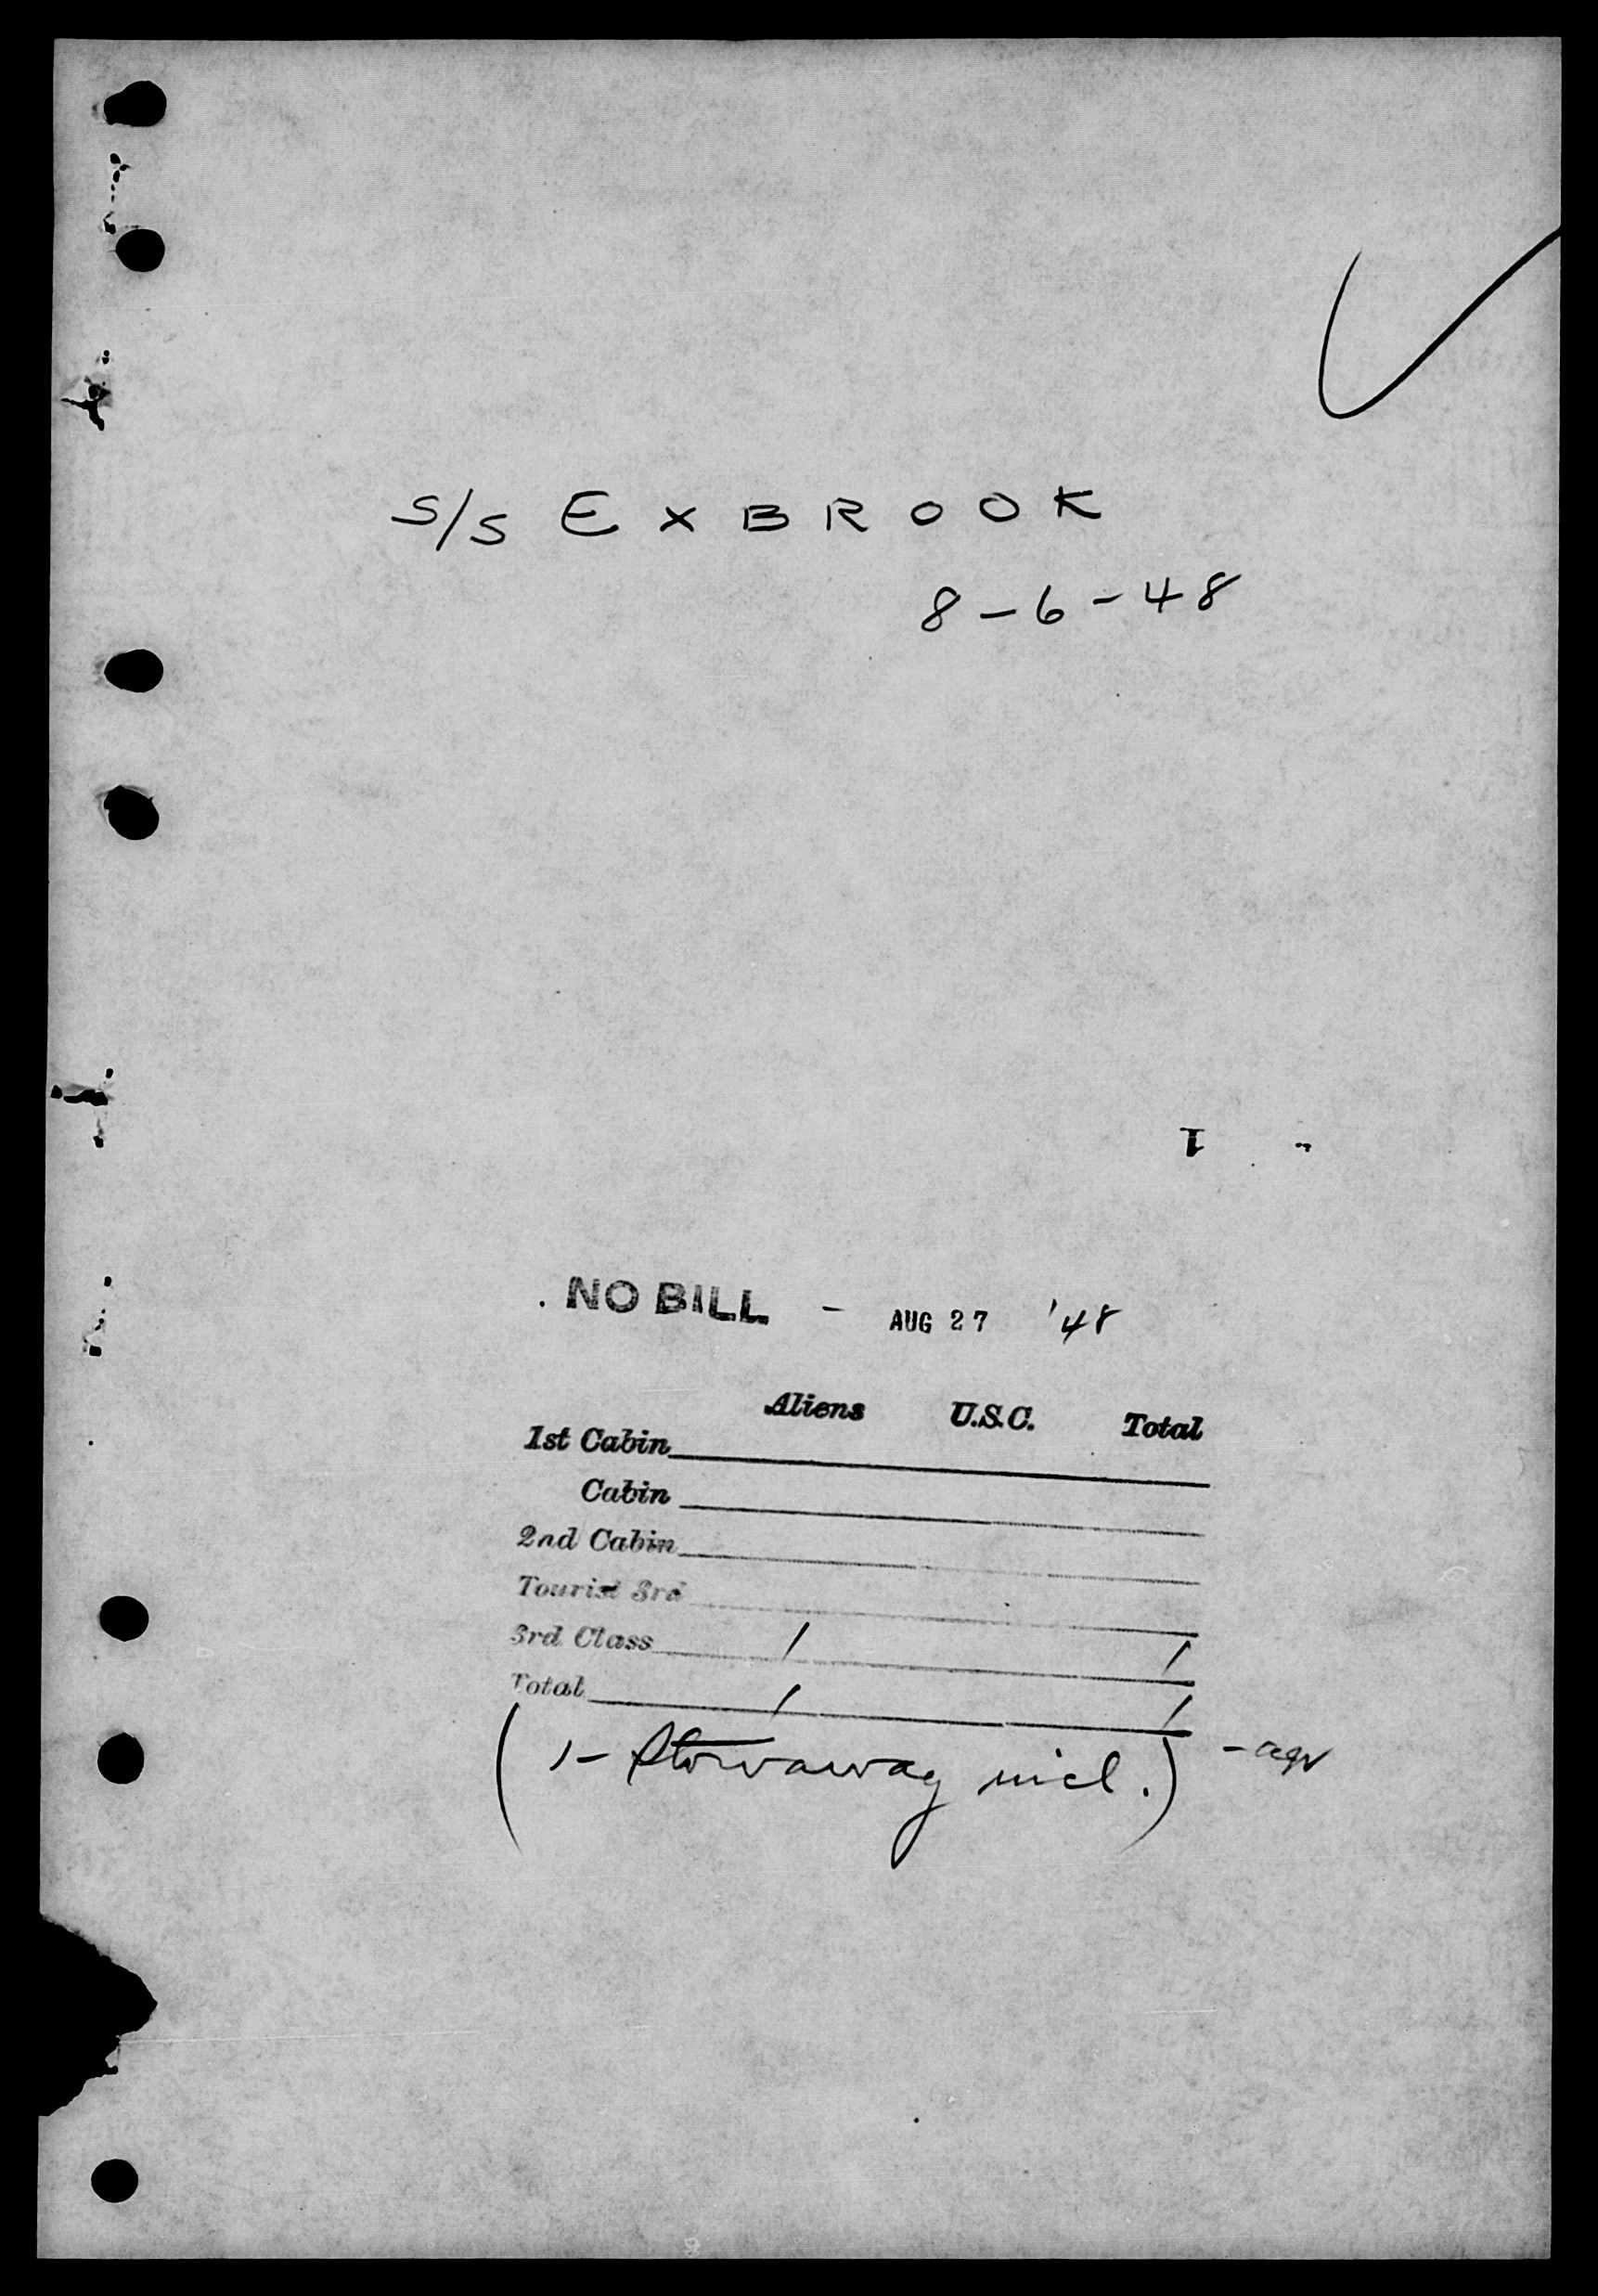 S/S EXBROOK
8-6-48
1
NO BILL - AUG 27 '48
Aliens U.S.C. Total
1st Cabin
Cabin
2nd Cabin
Tourist 3rd
3rd Class 1 1
Total 1 1
(1- Stowaway incl.)